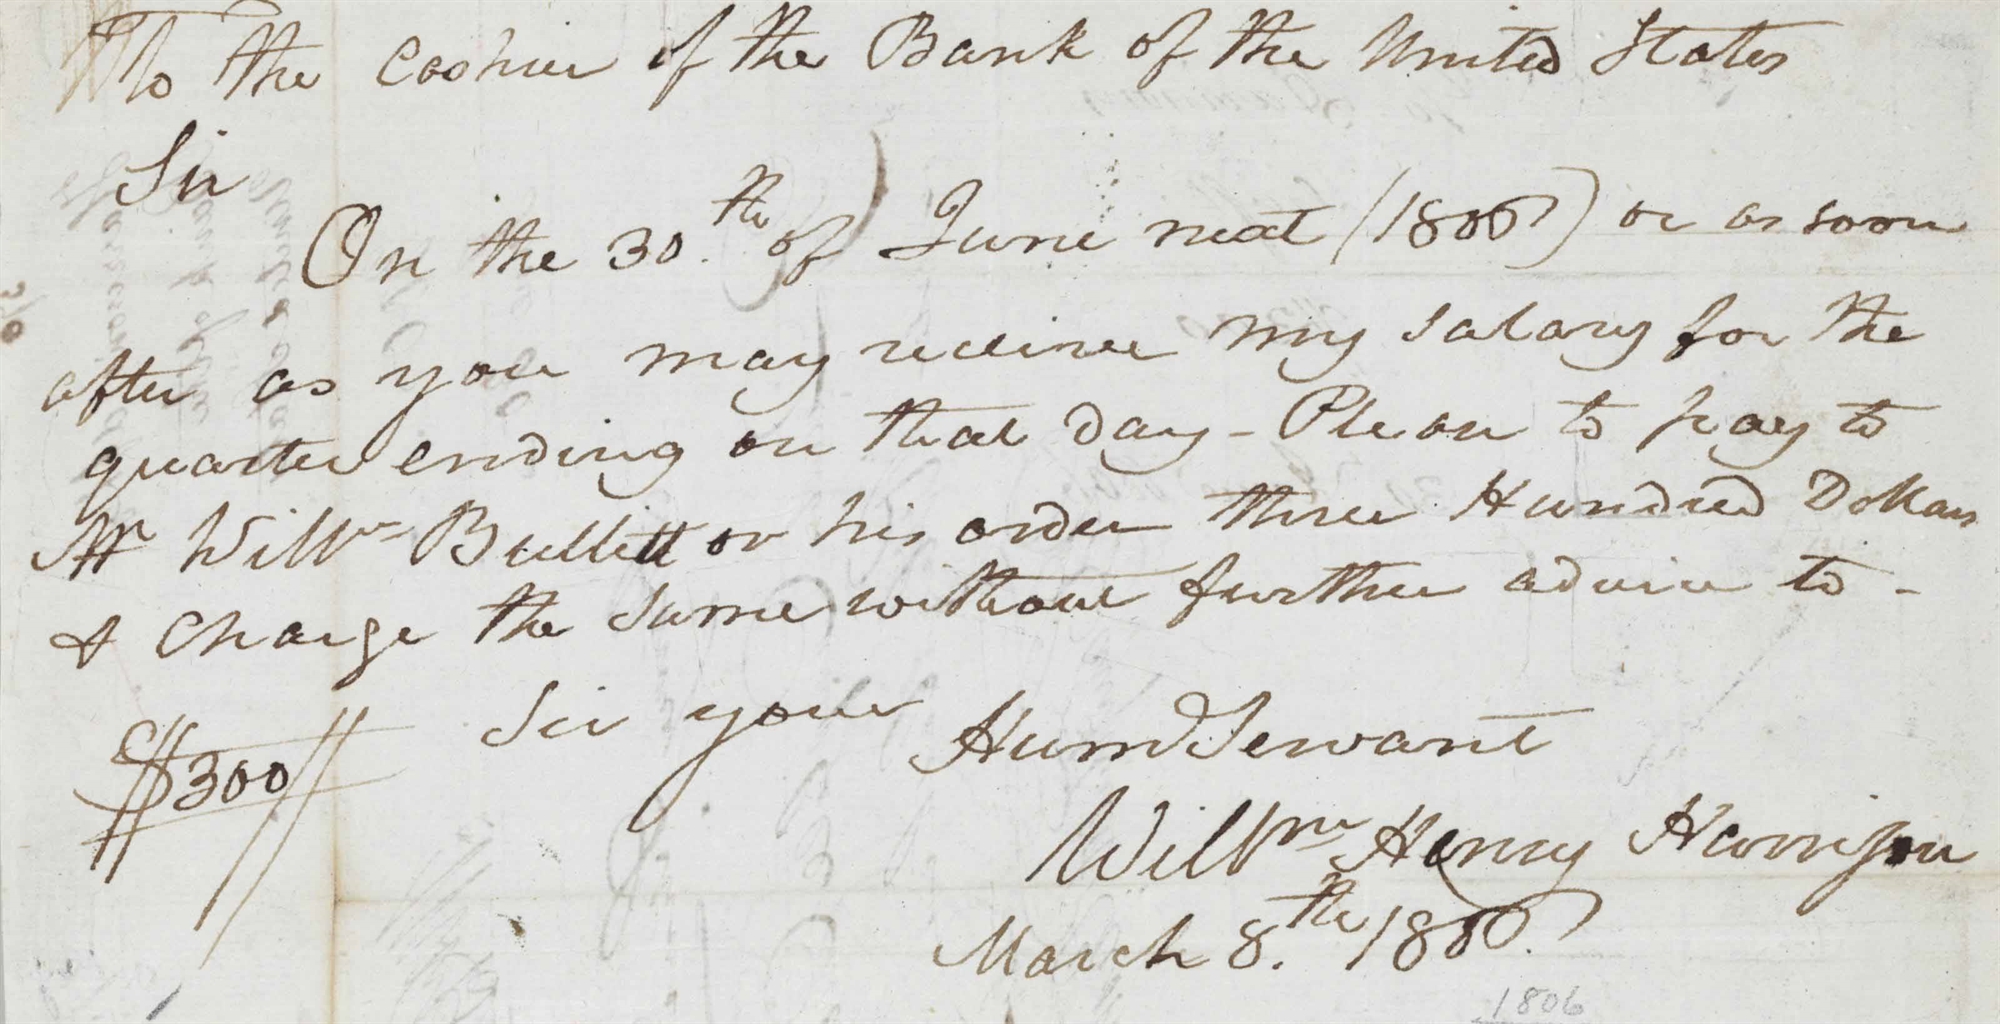 To the Cashier of the Bank of the United States
Sir
On the 30.th of June next (1806) or as soon
after as you may receive my salary for the
quarter ending on that day - Please to pay to
Mr Willm Bullitt or his order three Hundred Dollars
& Charge the same without further advice to -
Sir your
Hum Servant
$300
Willm Henry Harrison
March 8.th 1806.
1806